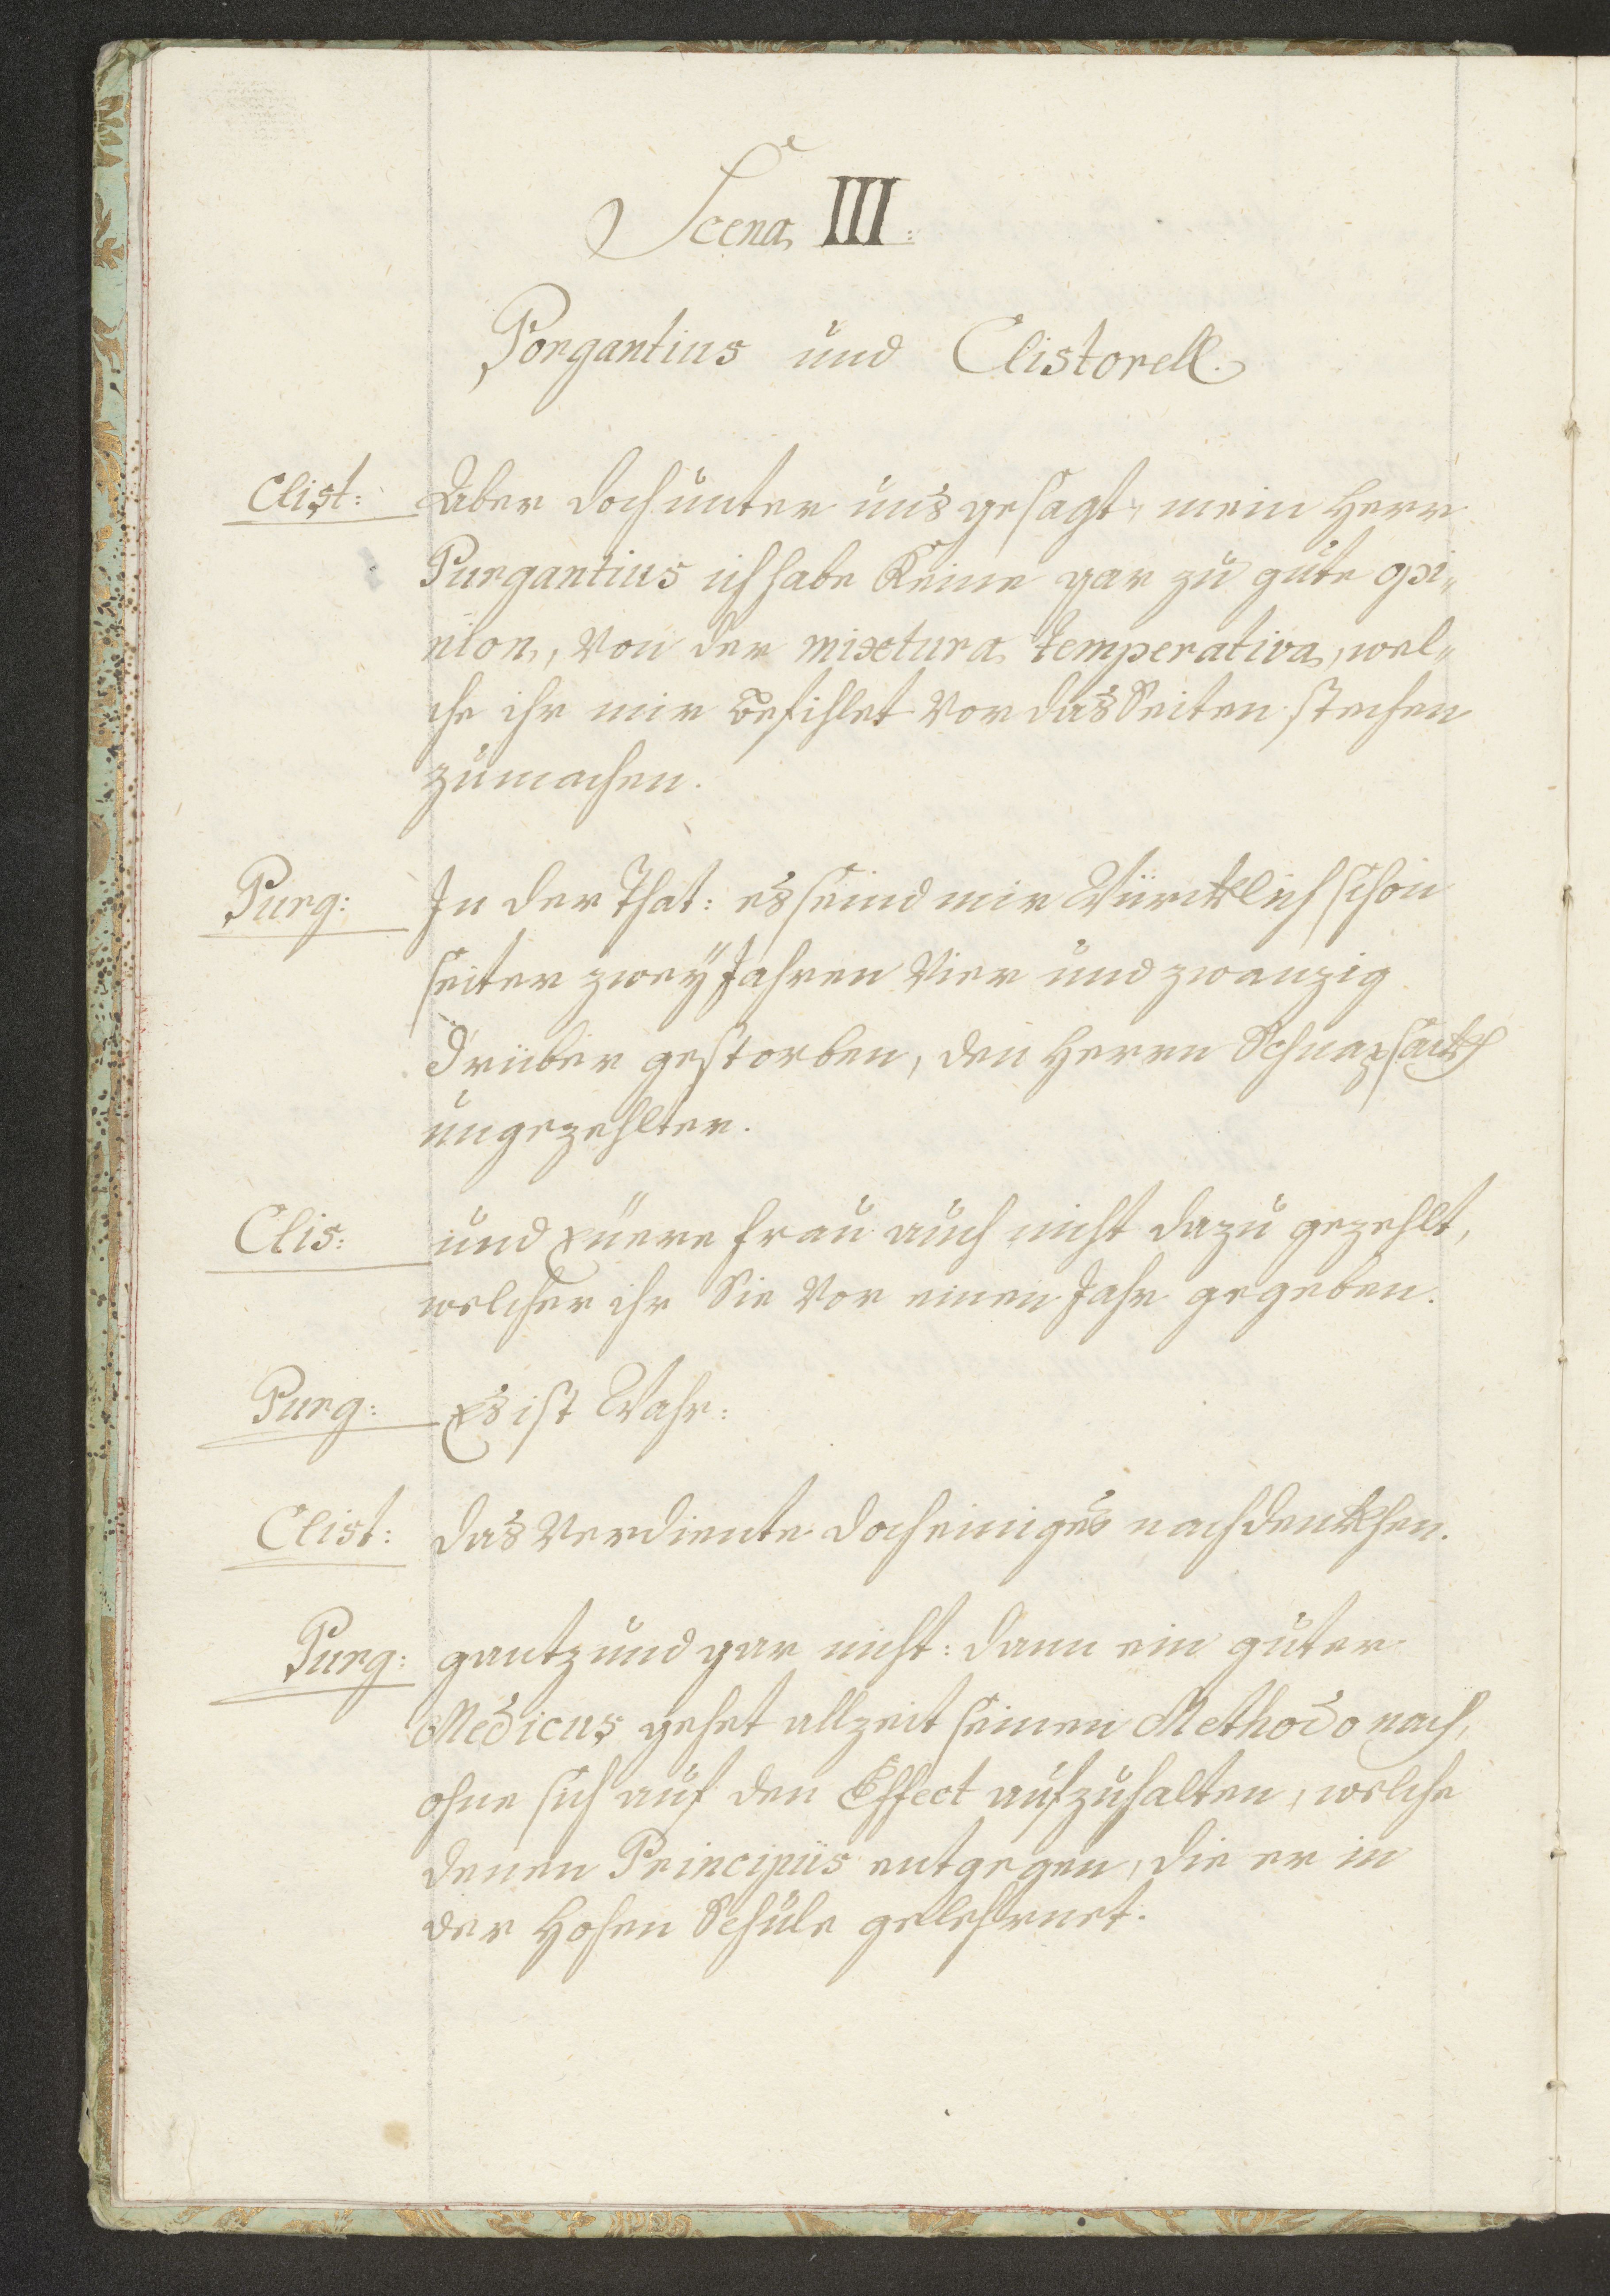 Scena III:
Porgantius und Clistorell.
Clist: Aber doch unter uns gesagt, mein Herr
Purgantius ich habe Keine gar zu gute opi„
nion, Von der mixtura temperativa, wel„
che ihr mir befihlet Vor das Seiten stechen
zumachen.
Purg: In der That: es seind mir Würcklich schon
seiter zweÿ Jahren Vier und zwanzig
drüber gestorben, den Herrn Schnapsackh
ungezehlter.
Clis: und Eüere Frau auch nicht dazu gezehlt,
welcher ihr Sie Vor einen Jahr gegeben.
Purg: Es ist Wahr:
Clist: das Verdiente doch einiges nachdenckhen.
Purg: gantz und gar nicht: dann ein guter
Medicus gehet allzeit seinen Methodo nach,
ohne sich auf den Effect aufzuhalten, welche
denen Principiis entgegen, die er in
der Hohen Schule gelehrnet.